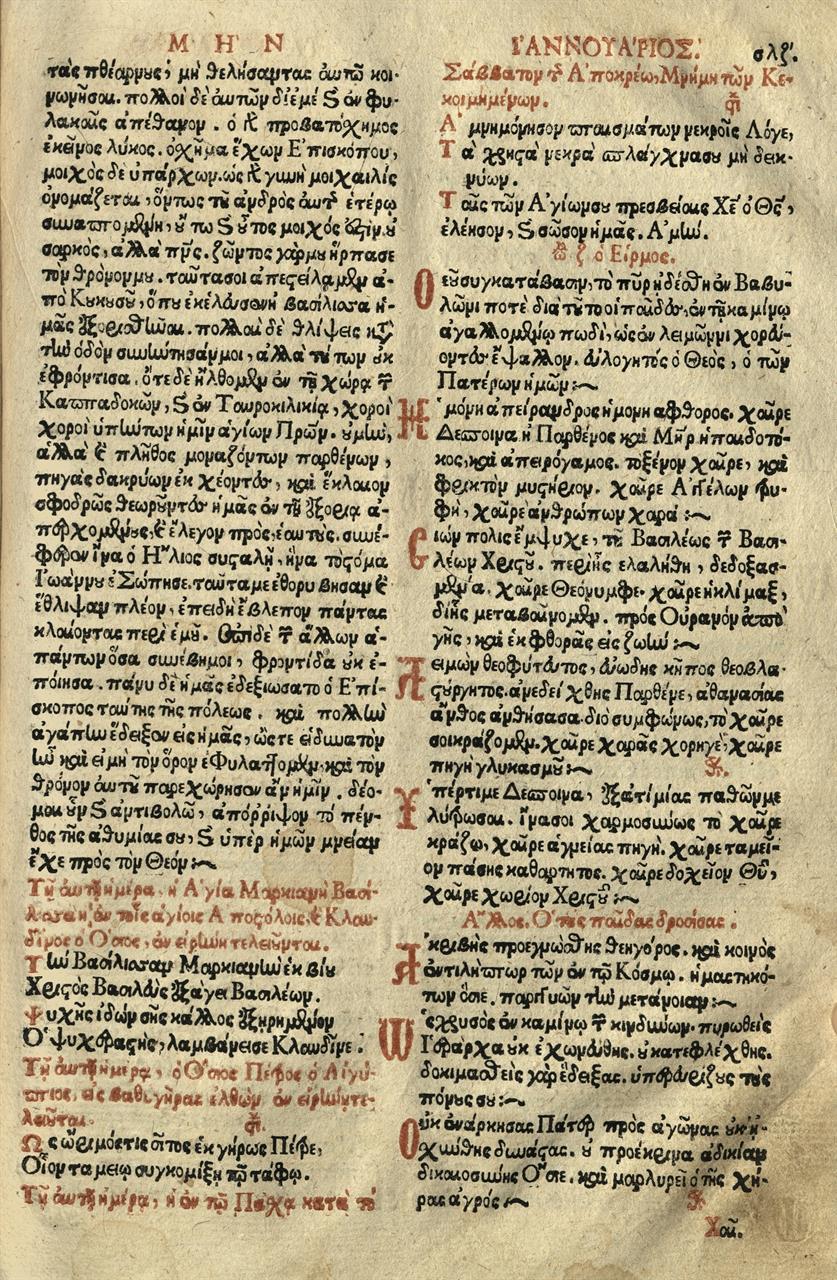 ΜΗΝ
ἸΑΝΝΟΥΆΡΙΟΣ. σλζ.
τὰς πθέαρχους, μὴ θελήσαντας αὐτῶ κοι-
νωνῆσαι. πολλοὶ δὲ αὐτῶν δι' ἐμὲ καὶ ἐν φυ-
λακαῖς ἀπέθανον. ὁ γὰρ προβατόχημος
ἐκεῖνος λύκος. ὁ χῆμα ἔχων Ἐπισκόπου,
μοιχὸς δὲ ὑπάρχων. ὡς γὰρ γυνὴ μοιχαλὶς
ὀνομάζεται, ὄντως τοῦ ἀνδρὸς αὐτῆς ἑτέρῳ
συναπτομένη, οὕτω καὶ οὗτος μοιχός ἐστιν. οὐ
σαρκὸς, ἀλλὰ πνς. ζῶντος γάρ μου ἥρπασε
τὸν θρόνον μου. ταῦτα σοι ἀπεστείλαμεν ἀ-
πὸ Κυκυσοῦ, ὅπου ἐκέλευσεν ἡ βασίλισσα ἡ-
μᾶς ἐξορισθῆναι. πολλαὶ δὲ θλίψεις κατὰ
τὴν ὁδὸν συνήντησάν μοι, ἀλλὰ τούτων οὐκ
ἐφρόντισα. ὅτε δὲ ἤλθομεν ἐν τῇ χώρᾳ τῶν
Καππαδοκῶν, καὶ ἐν Ταυροκιλικίᾳ, χοροὶ
χοροὶ ὑπήντων ἡμῖν ἁγίων Πρων. οὐ μὴν,
ἀλλὰ καὶ πλῆθος μοναζόντων παρθένων,
πηγὰς δακρύων ἐκχέοντες, καὶ ἔκλαιον
σφοδρῶς θεωροῦντες ἡμᾶς ἐν τῇ ἐξορίᾳ ἀ-
περχομένους, καὶ ἔλεγον πρὸς, ἑαυτοὺς. συνέ-
φερεν ἵνα ὁ Ἥλιος συσταλῇ, ἢ ἵνα τὸ στόμα
Ἰωάννου ἐσιώπησε. ταῦτα με ἐθορύβησαν καὶ
ἔθλιψαν πλέον, ἐπειδὴ ἔβλεπον πάντας
κλαίοντας περὶ ἐμοῦ. ἐπεὶ δὲ τῶν ἄλλων ἁ-
πάντων ὅσα συνέβη μοι, φροντίδα οὐκ ἐ-
ποίησα. πάνυ δὲ ἡμᾶς ἐδεξιώσατο ὁ Ἐπί-
σκοπος ταύτης τῆς πόλεως. καὶ πολλὴν
ἀγάπην ἔδειξεν εἰς ἡμᾶς, ὥστε εἰ δυνατὸν
ἦν καὶ εἰ μὴ τὸν ὅρον ἐφυλάττομεν, καὶ τὸν
θρόνον αὐτοῦ παρεχώρησεν ἂν ἡμῖν. δέο-
μαι οὖν καὶ ἀντιβολῶ, ἀπόρριψον τὸ πέν-
θος τῆς ἀθυμίας σου, καὶ ὑπὲρ ἡμῶν μνείαν
ἔχε πρὸς τὸν Θεόν:
Τῇ αὐτῇ ἡμέρᾳ, ἡ Ἁγία Μαρκιανὴ Βασί-
λισσα ἡ ἐν τοῖς ἁγίοις Ἀποστόλοις, καὶ Κλαυ-
δῖνος ὁ Ὅσιος, ἐν εἰρήνη τελειοῦνται.
Τὴν Βασίλισσαν Μαρκιανὴν ἐκ βίου
Χριστὸς Βασιλεὺς ἐξάγει Βασιλέων.
Ψυχῆς ἰδὼν σῆς κάλλος ἐξῃρημένον
Ὁ ψυχοφαγὴς, λαμβάνει σε Κλαυδῖνε.
Τῇ αὐτῇ ἡμέρᾳ, ὁ Ὅσιος Πέτρος ὁ Αἰγύ-
πτιος, εἰς βαθὺ γῆρας ἐλθὼν ἐν εἰρήνῃ τε-
λειοῦται.
Ὡς ὥριμός τις σῖτος ἐκ γήρως Πέτρε,
Οἷον ταμείῳ συγκομίζῃ τῷ τάφῳ.
Τῇ αὐτῇ ἡμέρᾳ, ἡ ἐν τῷ Πάσχα κατὰ τὸ
Σάββατον τῆς Ἀποκρέω, Μνήμη τῶν Κε-
κοιμημένων.
Ἀμνημόνησον πταισμάτων νεκροῖς Λόγε,
Τὰ χρηστὰ νεκρὰ σπλάγχνα σου μὴ δει-
κνύων.
Ταῖς τῶν Ἁγίων σου πρεσβείαις Χε ὁ Θς,
ἐλέησον, καὶ σῶσον ἡμᾶς. Ἀμήν.
ζ ὁ Εἱρμος.
Θεοῦ συγκατάβασιν, τὸ πῦρ ᾐδέσθη ἐν Βαβυ-
λῶνι ποτέ διὰ τοῦτο οἱ παῖδες, ἐν τῇ καμίνῳ
ἀγαλλομένῳ ποδὶ, ὡς ἐν λειμῶνι χορεύ-
οντες ἔψαλλον. εὐλογητὸς ὁ Θεὸς, ὁ τῶν
Πατέρων ἡμῶν:
Ἡ μόνη ἀπείρανδρος ἡ μόνη ἄφθορος. χαῖρε
Δέσποινα ἡ Παρθένος καὶ Μηρ ἡ παιδοτό-
κος, καὶ ἀπειρόγαμος. τὸ ξένον χαῖρε, καὶ
φρικτὸν μυστήριον. χαῖρε Ἀγγέλων τρυ-
φὴ, χαῖρε ἀνθρώπων χαρά:
Σιὼν πόλις ἔμψυχε, τοῦ Βασιλέως τῶν Βασι-
λέων Χριστοῦ. περὶ ἧς ἐλαλήθη, δεδοξασ-
μένα. χαῖρε Θεόνυμφε. χαῖρε ἡ κλίμαξ,
δι' ἧς μεταβαίνομεν. πρὸς Οὐρανὸν ἀπὸ
γῆς, καὶ ἐκ φθορᾶς εἰς ζωήν:
Λειμὼν θεοφύτευτος, εὐώδης κῆπος θεοβλα-
στούργητος. ἀνεδείχθης Παρθένε, ἀθανασίας
ἄνθος ἀνθήσασα. διὸ συμφώνως, τὸ χαῖρε
σοι κράζομεν. χαῖρε χαρᾶς χορηγὲ, χαῖρε
πηγὴ γλυκασμοῦ:
Ὑπέρτιμε Δέσποινα, ἐξ ἀτιμίας παθῶν με
λύτρωσαι. ἵνα σοι χαρμοσύνως τὸ χαῖρε
κράζω, χαῖρε ἁγνείας πηγή. χαῖρε ταμεῖ-
ον πάσης καθαρότητος. χαῖρε δοχεῖον Θῦ,
χαῖρε χωρίον Χριστοῦ:
Ἄλλος. Ὁ τοὺς παῖδας δροσίσας.
Ἀκριβὴς προεγνώσθης θεηγόρος. καὶ κοινὸς
ἀντιλήπτωρ τῶν ἐν τῷ Κόσμῳ. ἡμαρτηκό-
των ὅσιε. παρεγγυῶν τὴν μετάνοιαν:
Ὡς χρυσὸς ἐν καμίνῳ τῶν κινδύνων. πυρωθεὶς
Ἱεράρχα οὐκ ἐχωνεύθης. οὐ κατεφλέχθης.
δοκιμασθεὶς γὰρ ἔδειξας. ὑπεραρίζους τοὺς
πόνους σου:
Οὐκ ἐνάρκησας Πάτερ πρὸς ἀγῶνας οὐκ ἠ-
χυώθης δυνάστας. οὐ προέκρινα ἀδικίαν
δικαιοσύνης Ὅσιε. καὶ μαρτυρεῖ ὁ τῆς χή-
ρας ἀγρός:
Χαῖ.